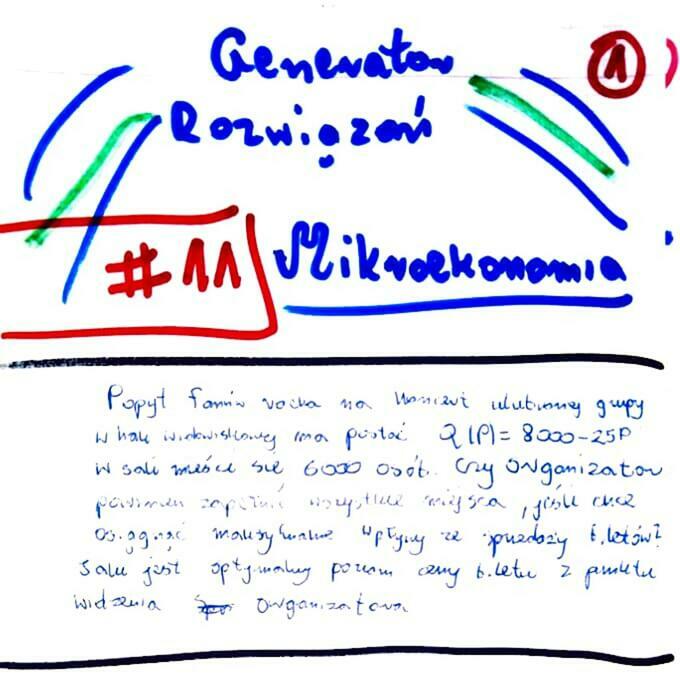 Generator
1
Rozwiązań
#11
Mikroekonomia
Popyt fanów rocka na koncert ulubionej grupy
w hali widowiskowej ma postać Q(P) = 8000-25P
W sali mieści się 6000 osób. Czy organizator
powinien zapełnić wszystkie miejsca, jeśli chce
osiągnąć maksymalne wpływy ze sprzedaży biletów?
Jaki jest optymalny poziom ceny biletu z punktu
widzenia organizatora